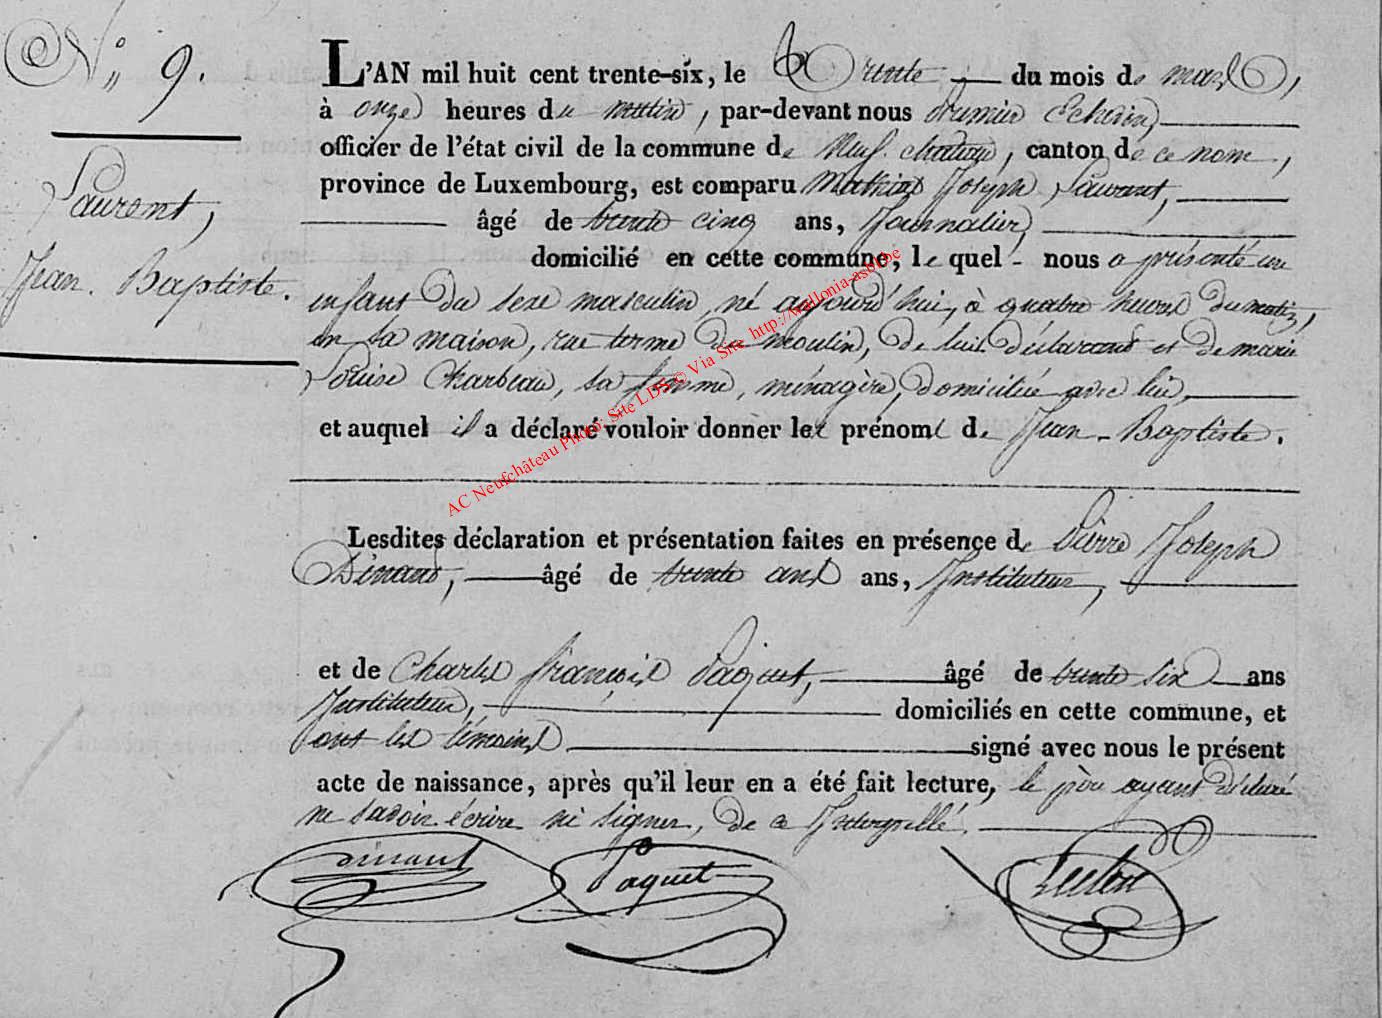 N.° 9.
Laurent,
Jean-Baptiste.
L'AN mil huit cent trente-six, le Trente du mois de mars,
à onze heures du matin, par-devant nous premier Echevin,
officier de l'état civil de la commune de Neufchateau, canton de ce nom,
province de Luxembourg, est comparu Mathias Joseph Laurent,
âgé de trente cinq ans, Journalier,
domicilié en cette commune, lequel nous a présenté un
enfant du sexe masculin, né aujourd'hui, à quatre heures du matin,
en sa maison, rue terme du moulin, de lui déclarant et de marie
Louise Charbeau, sa femme, ménagère, domiciliée avec lui,
et auquel il a déclaré vouloir donner les prénoms de Jean-Baptiste.
Lesdites déclaration et présentation faites en présence de Pierre Joseph
Dinant, âgé de trente ans ans, Instituteur,
et de Charles françois Paquet, âgé de trente six ans
Instituteur, domiciliés en cette commune, et
ont les témoins signé avec nous le présent
acte de naissance, après qu'il leur en a été fait lecture, le père ayant déclaré
ne savoir écrire ni signer, de ce Interpellé.
Dinant Paquet
AC Neufchâteau Photo: Site LDS © Via Site http://wallonia-asbl.be